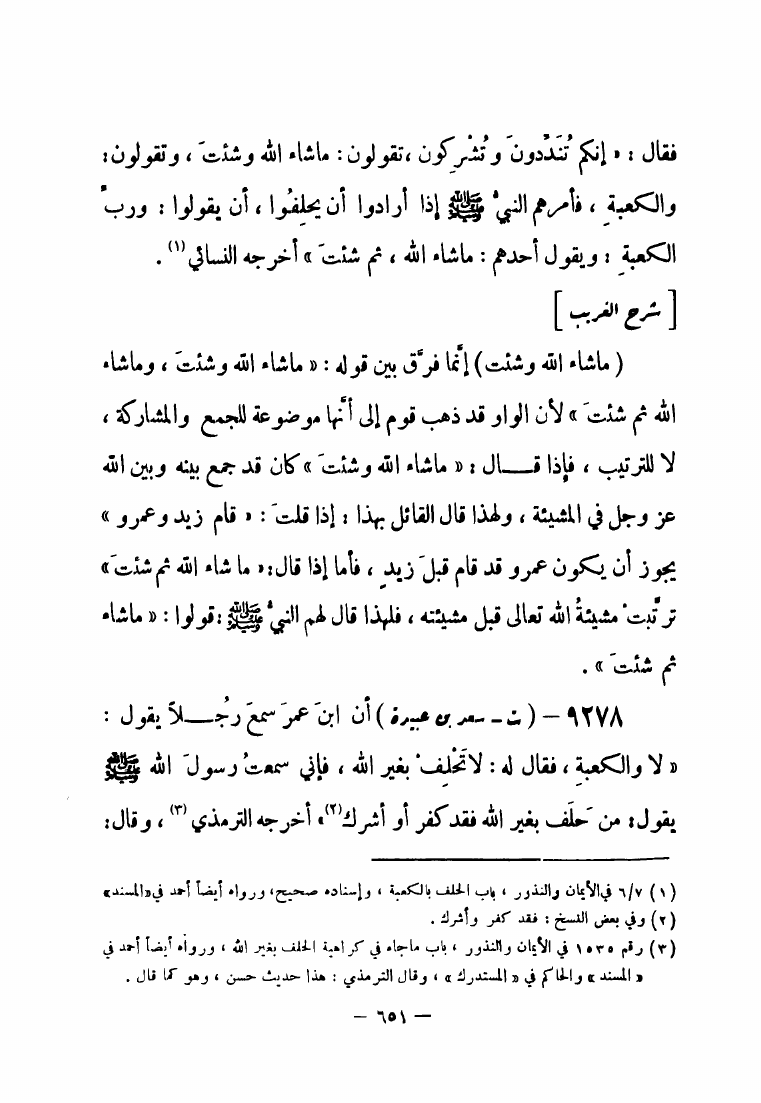 فقال : « إنكم تُنَدِّدونَ و تُشْرِكون ، تقولون : ماشاء الله وشئتَ ، وتقولون :
والكعبةِ ، فأمرهم النبيُّ ﷺ إذا أرادوا أن يحلِفُوا ، أن يقولوا : وربِّ
الكعبةِ : ويقول أحدهم : ماشاء الله ، ثم شئتَ » أخرجه النسائي (١) .
[ شرح الغريب ]
( ماشاء الله وشئت ) إنَّما فرَّق بين قوله : « ماشاء الله وشئتَ ، وماشاء
الله ثم شئتَ » لأن الواو قد ذهب قوم إلى أنَّها موضوعة للجمع والمشاركة ،
لا للترتيب ، فإذا قـــال : « ماشاء الله وشئتَ » كان قد جمع بينه وبين الله
عز وجل في المشيئة ، ولهذا قال القائل بهذا : إذا قلتَ : « قام زيد وعمرو »
يجوز أن يكون عمرو قد قام قبلَ زيدٍ ، فأما إذا قال : « ما شاء الله ثم شئتَ »
ترتَّبتْ مشيئةُ الله تعالى قبل مشيئته ، فلهذا قال لهم النبيُّ ﷺ : قولوا : « ماشاء
ثم شئتَ » .
٩٢٧٨ — ( ت - سعد بن عبيدة ) أن ابنَ عمرَ سمعَ رجُـــلاً يقول :
« لا والكعبةِ ، فقال له : لاتَحْلِفْ بغير الله ، فإني سمعتُ رسولَ الله ﷺ
يقول : من حَلَف بغير الله فقد كفر أو أشرك (٢) » أخرجه الترمذي (٣) ، وقال :
(١) ٦/٧ في الأيمان والنذور ، باب الحلف بالكعبة ، وإسناده صحيح ، ورواه أيضاً أحمد في « المسند »
(٢) وفي بعض النسخ : فقد كفر وأشرك .
(٣) رقم ١٥٣٥ في الأيمان والنذور ، باب ماجاء في كراهية الحلف بغير الله ، ورواه أيضاً أحمد في
« المسند » والحاكم في « المستدرك » ، وقال الترمذي : هذا حديث حسن ، وهو كما قال .
— ٦٥١ —